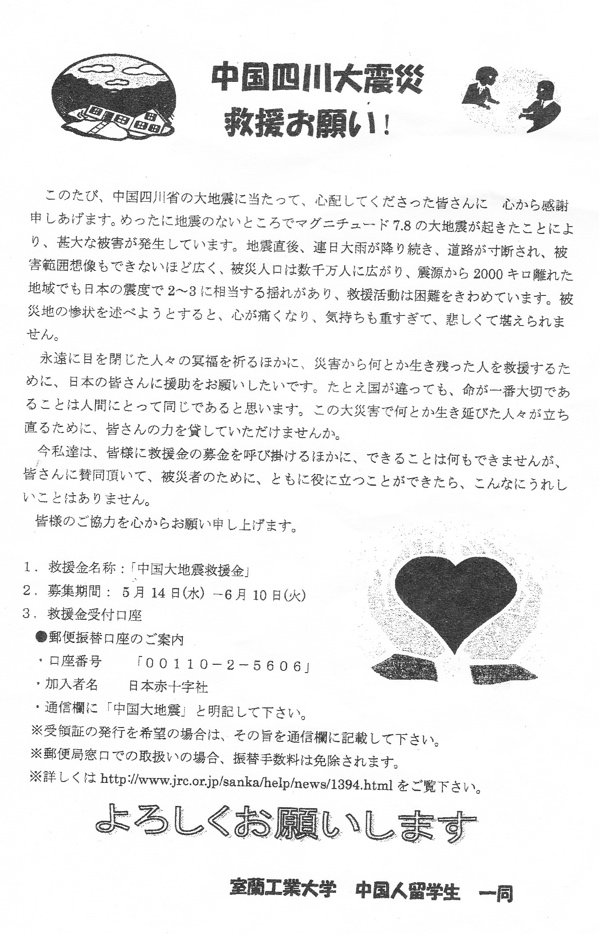 中国四川大震災
救援お願い！
このたび、中国四川省の大地震に当たって、心配してくださった皆さんに　心から感謝
申しあげます。めったに地震のないところでマグニチュード 7.8 の大地震が起きたことによ
り、甚大な被害が発生しています。地震直後、連日大雨が降り続き、道路が寸断され、被
害範囲想像もできないほど広く、被災人口は数千万人に広がり、震源から 2000 キロ離れた
地域でも日本の震度で 2～3 に相当する揺れがあり、救援活動は困難をきわめています。被
災地の惨状を述べようとすると、心が痛くなり、気持ちも重すぎて、悲しくて堪えられま
せん。
永遠に目を閉じた人々の冥福を祈るほかに、災害から何とか生き残った人を救援するた
めに、日本の皆さんに援助をお願いしたいです。たとえ国が違っても、命が一番大切であ
ることは人間にとって同じであると思います。この大災害で何とか生き延びた人々が立ち
直るために、皆さんの力を貸していただけませんか。
今私達は、皆様に救援金の募金を呼び掛けるほかに、できることは何もできませんが、
皆さんに賛同頂いて、被災者のために、ともに役に立つことができたら、こんなにうれし
いことはありません。
皆様のご協力を心からお願い申し上げます。
1．救援金名称：「中国大地震救援金」
2．募集期間： 5 月 14 日(水) －6 月 10 日(火)
3．救援金受付口座
●郵便振替口座のご案内
・口座番号　「００１１０－２－５６０６」
・加入者名　日本赤十字社
・通信欄に「中国大地震」と明記して下さい。
※受領証の発行を希望の場合は、その旨を通信欄に記載して下さい。
※郵便局窓口での取扱いの場合、振替手数料は免除されます。
※詳しくは http://www.jrc.or.jp/sanka/help/news/1394.html をご覧下さい。
よろしくお願いします
室蘭工業大学　中国人留学生　一同